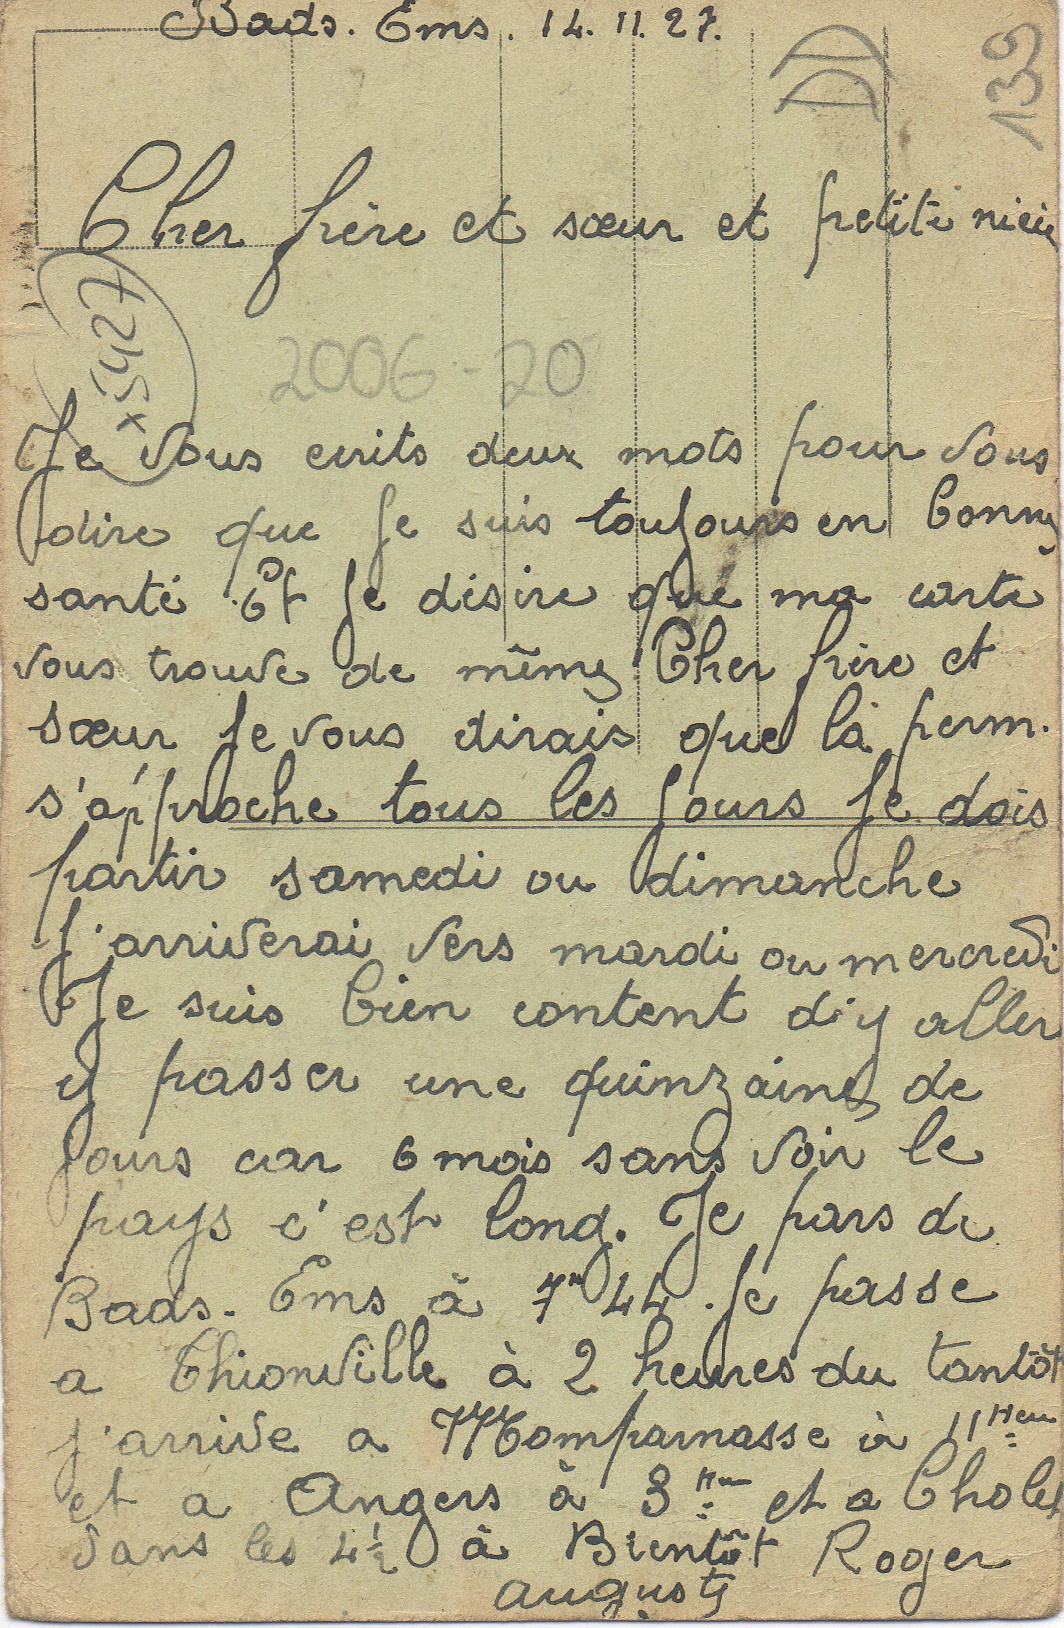 Bads. Ems. 14. 11. 27.
DD
139
Cher frère et sœur et petite nièce
x5427
2006-20
Je vous ecrits deux mots pour vous
dire que Je suis toujours en bonne
santé Et Je désire que ma carte
vous trouve de même. Cher frère et
sœur Je vous dirais que la perm.
s'approche tous les jours Je dois
partir samedi ou dimanche
J'arriverai vers mardi ou mercredi
Je suis bien content d'y aller
y passer une quinzaine de
Jours car 6 mois sans voir le
pays c'est long. Je pars de
Bads. Ems à 7h 44. Je passe
a Thionville à 2 heures du tantôt
j'arrive a Momparnasse à 11 Heu
et a Angers à 3 Heu et a Cholet
dans les 4 1/2 à Bientôt Roger
Auguste